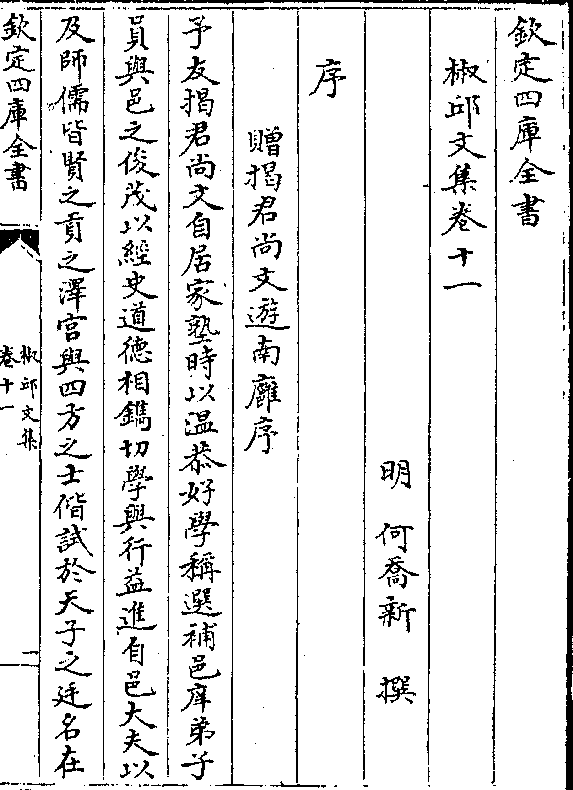 欽定四庫全書
椒邱文集卷十一
明 何喬新 撰
序
贈揭君尚文遊南廱序
予友揭君尚文自居家塾時以温恭好學稱選補邑庠弟子
員與邑之俊茂以經史道德相鐫切學與行益進自邑大夫以
及師儒皆賢之貢之澤宮與四方之士偕試於天子之廷名在
欽定四庫全書
椒邱文集
卷十一
一